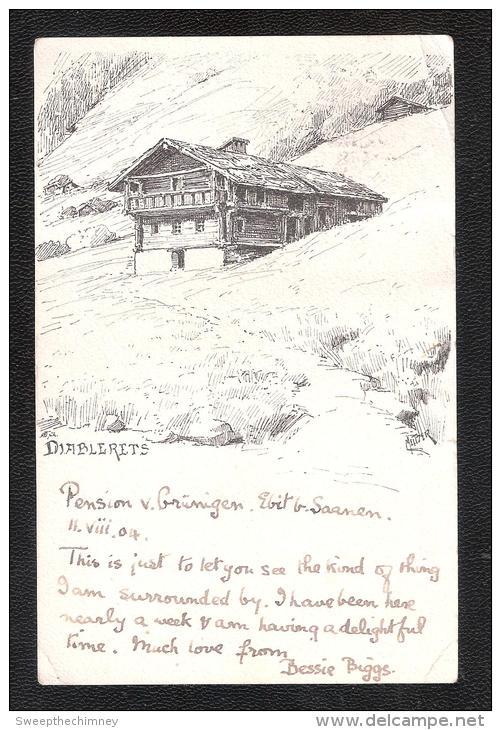 DIABLERETS
Pension v. Grünigen. Ebit b. Saanen.
11.viii.04.
This is just to let you see the kind of thing
I am surrounded by. I have been here
nearly a week & am having a delightful
time. Much love from
Bessie Biggs.
Sweepthechimney
www.delcampe.net